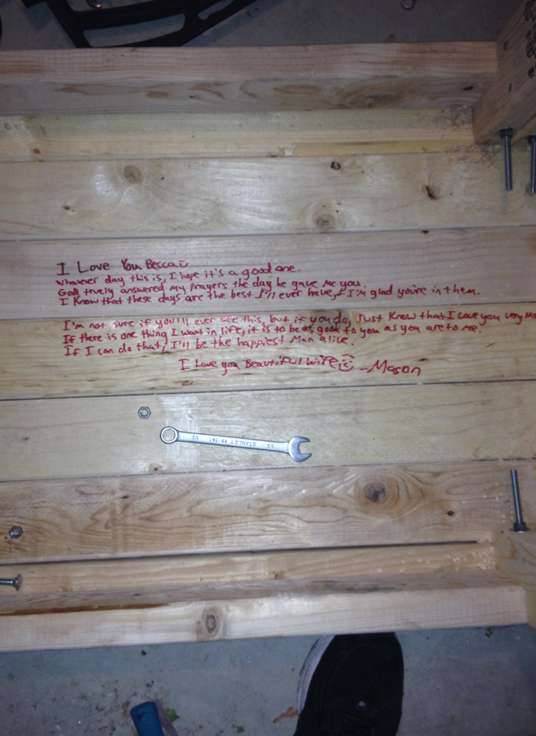 I Love You Becca
Whatever day this is, I hope it's a good one.
God truely answered my Prayers the day he gave me you.
I Know that these days are the best I'll ever have, & I'm glad you're in them.
I'm not sure if you'll ever see this, but if you do, Just Know that I Love you very
If there is one thing I want in life, it is to be as good to you as you are to me.
If I can do that, I'll be the happiest Man alive.
I Love you Beautiful Wife
-Mason
STANLEY